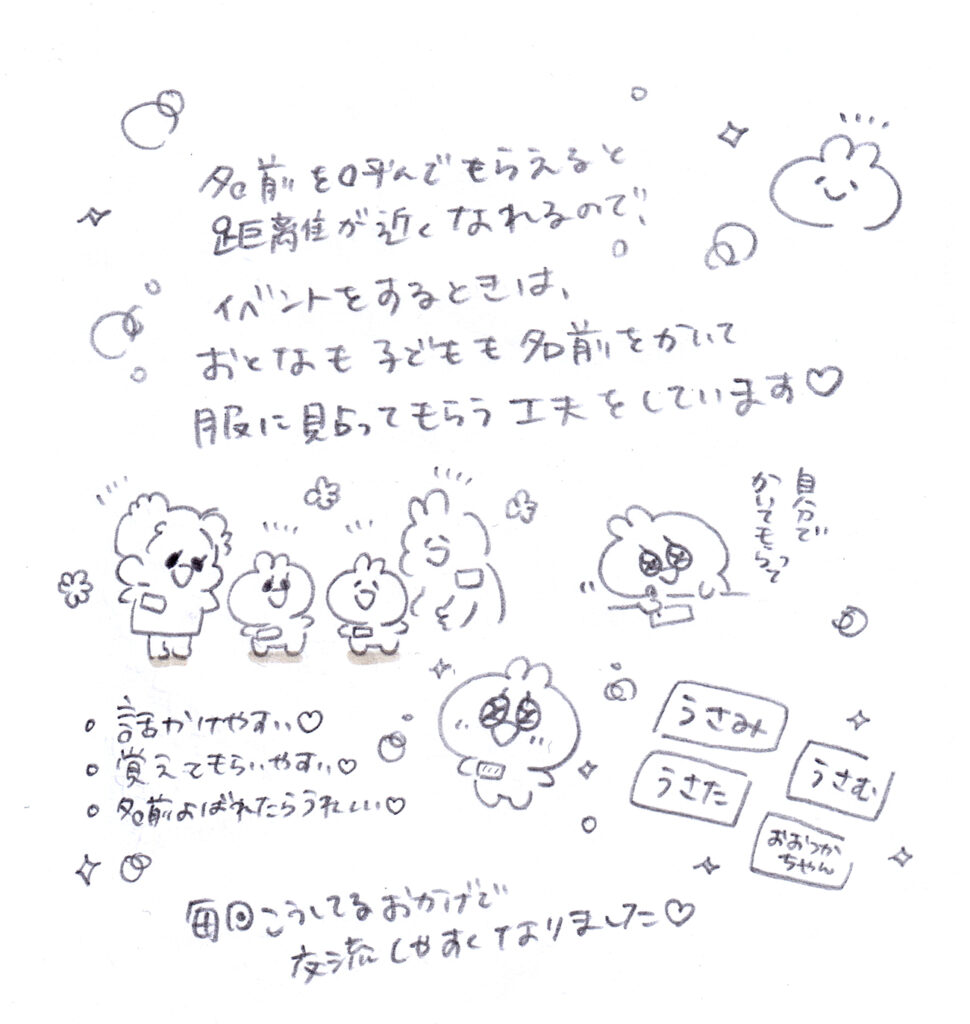 名前を呼んでもらえると
距離が近くなれるので、
イベントをするときは、
おとなも子どもも名前をかいて
服に貼ってもらう工夫をしています♡
自分で
かいてもらって
• 話かけやすい♡
• 覚えてもらいやすい♡
• 名前よばれたらうれしい♡
うさみ
うさた
うさむ
おおつか
ちゃん
毎回こうしてるおかげで
交流しやすくなりました♡